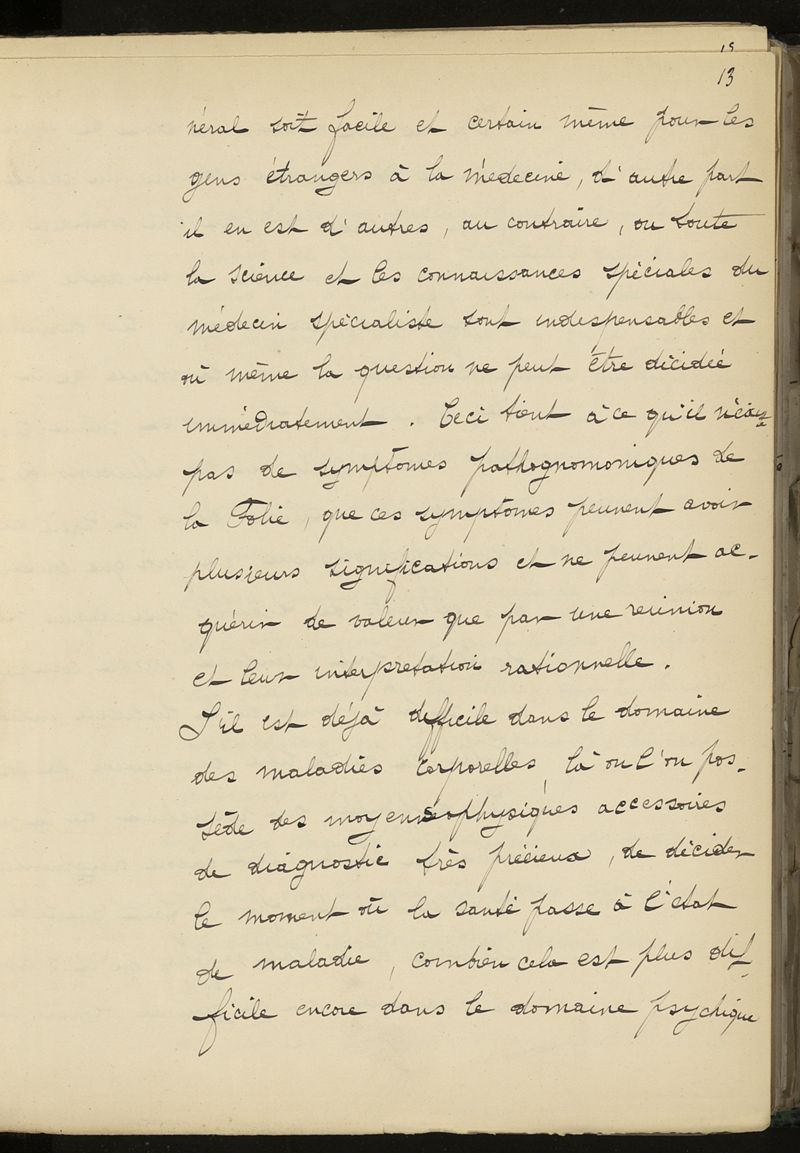 15
13
néral soit facile et certain même pour les
gens étrangers à la médecine, d'autre part
il en est d'autres, au contraire, ou toute
la science et les connaissances spéciales du
médecin spécialiste sont indispensables et
où même la question ne peut être décidée
immédiatement. Ceci tient à ce qu'il n'éxis
pas de symptomes pathognomoniques de
la Folie, que ces symptomes peuvent avoir
plusieurs significations et ne peuvent ac-
quérir de valeur que par une reunion
et leur interpretation rationnelle.
S'il est déjà difficile dans le domaine
des maladies corporelles, là ou l'on pos-
sède des moyens physiques accessoires
de diagnostic très précieux, de décider
le moment où la santé passe à l'état
de maladie, combien cela est plus dif-
ficile encore dans le domaine psychique